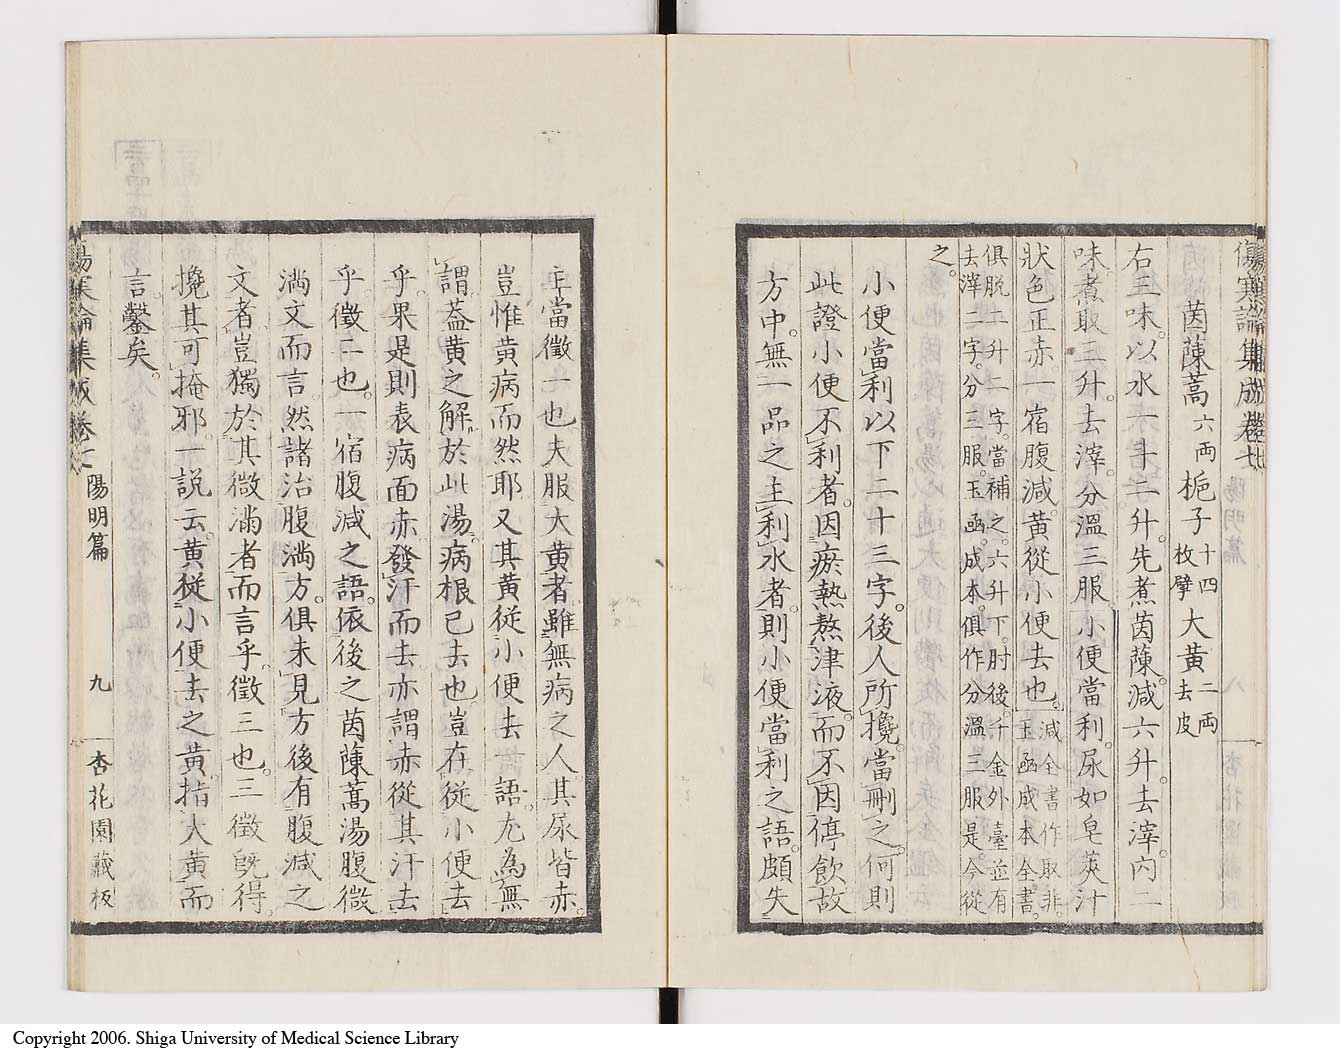 傷寒論集成卷七
陽明篇
八
茵蔯蒿六兩 梔子十四枚擘 大黃二兩去皮
右三味。以水一斗二升。先煮茵蔯。減六升。去滓。內二
味。煮取三升。去滓。分溫三服。小便當利。尿如皂莢汁
狀。色正赤。一宿腹減。黃從小便去也。減。全書作取。非。玉函成本全書。
俱脫二升二字。當補之。六升下。肘後。千金外臺並有
去滓二字。分三服。玉函。成本。俱作分溫三服。是。今從
之。
小便當利以下二十三字。後人所攙。當刪之。何則
此證小便不利者。因瘀熱熬津液。而不因停飲故
方中。無一品之主利水者。則小便當利之語。頗失
非當徵一也。夫服大黃者。雖無病之人。其尿皆赤。
豈惟黃病而然耶。又其黃從小便去語。尤為無
謂。蓋黃之解於此湯。病根已去也。豈在從小便去
乎。果是則表病面赤。發汗而去。亦謂赤從其汗去
乎。徵二也。一宿腹減之語。依後之茵蔯蒿湯腹微
滿文而言。然諸治腹滿方。俱未見方後有腹減之
文者。豈獨於其微滿者而言乎。徵三也。三徵既得。
攙其可掩邪。一說云。黃從小便去之黃。指大黃而
言。鑿矣。
傷寒論集成卷七
陽明篇
九
杏花園藏板